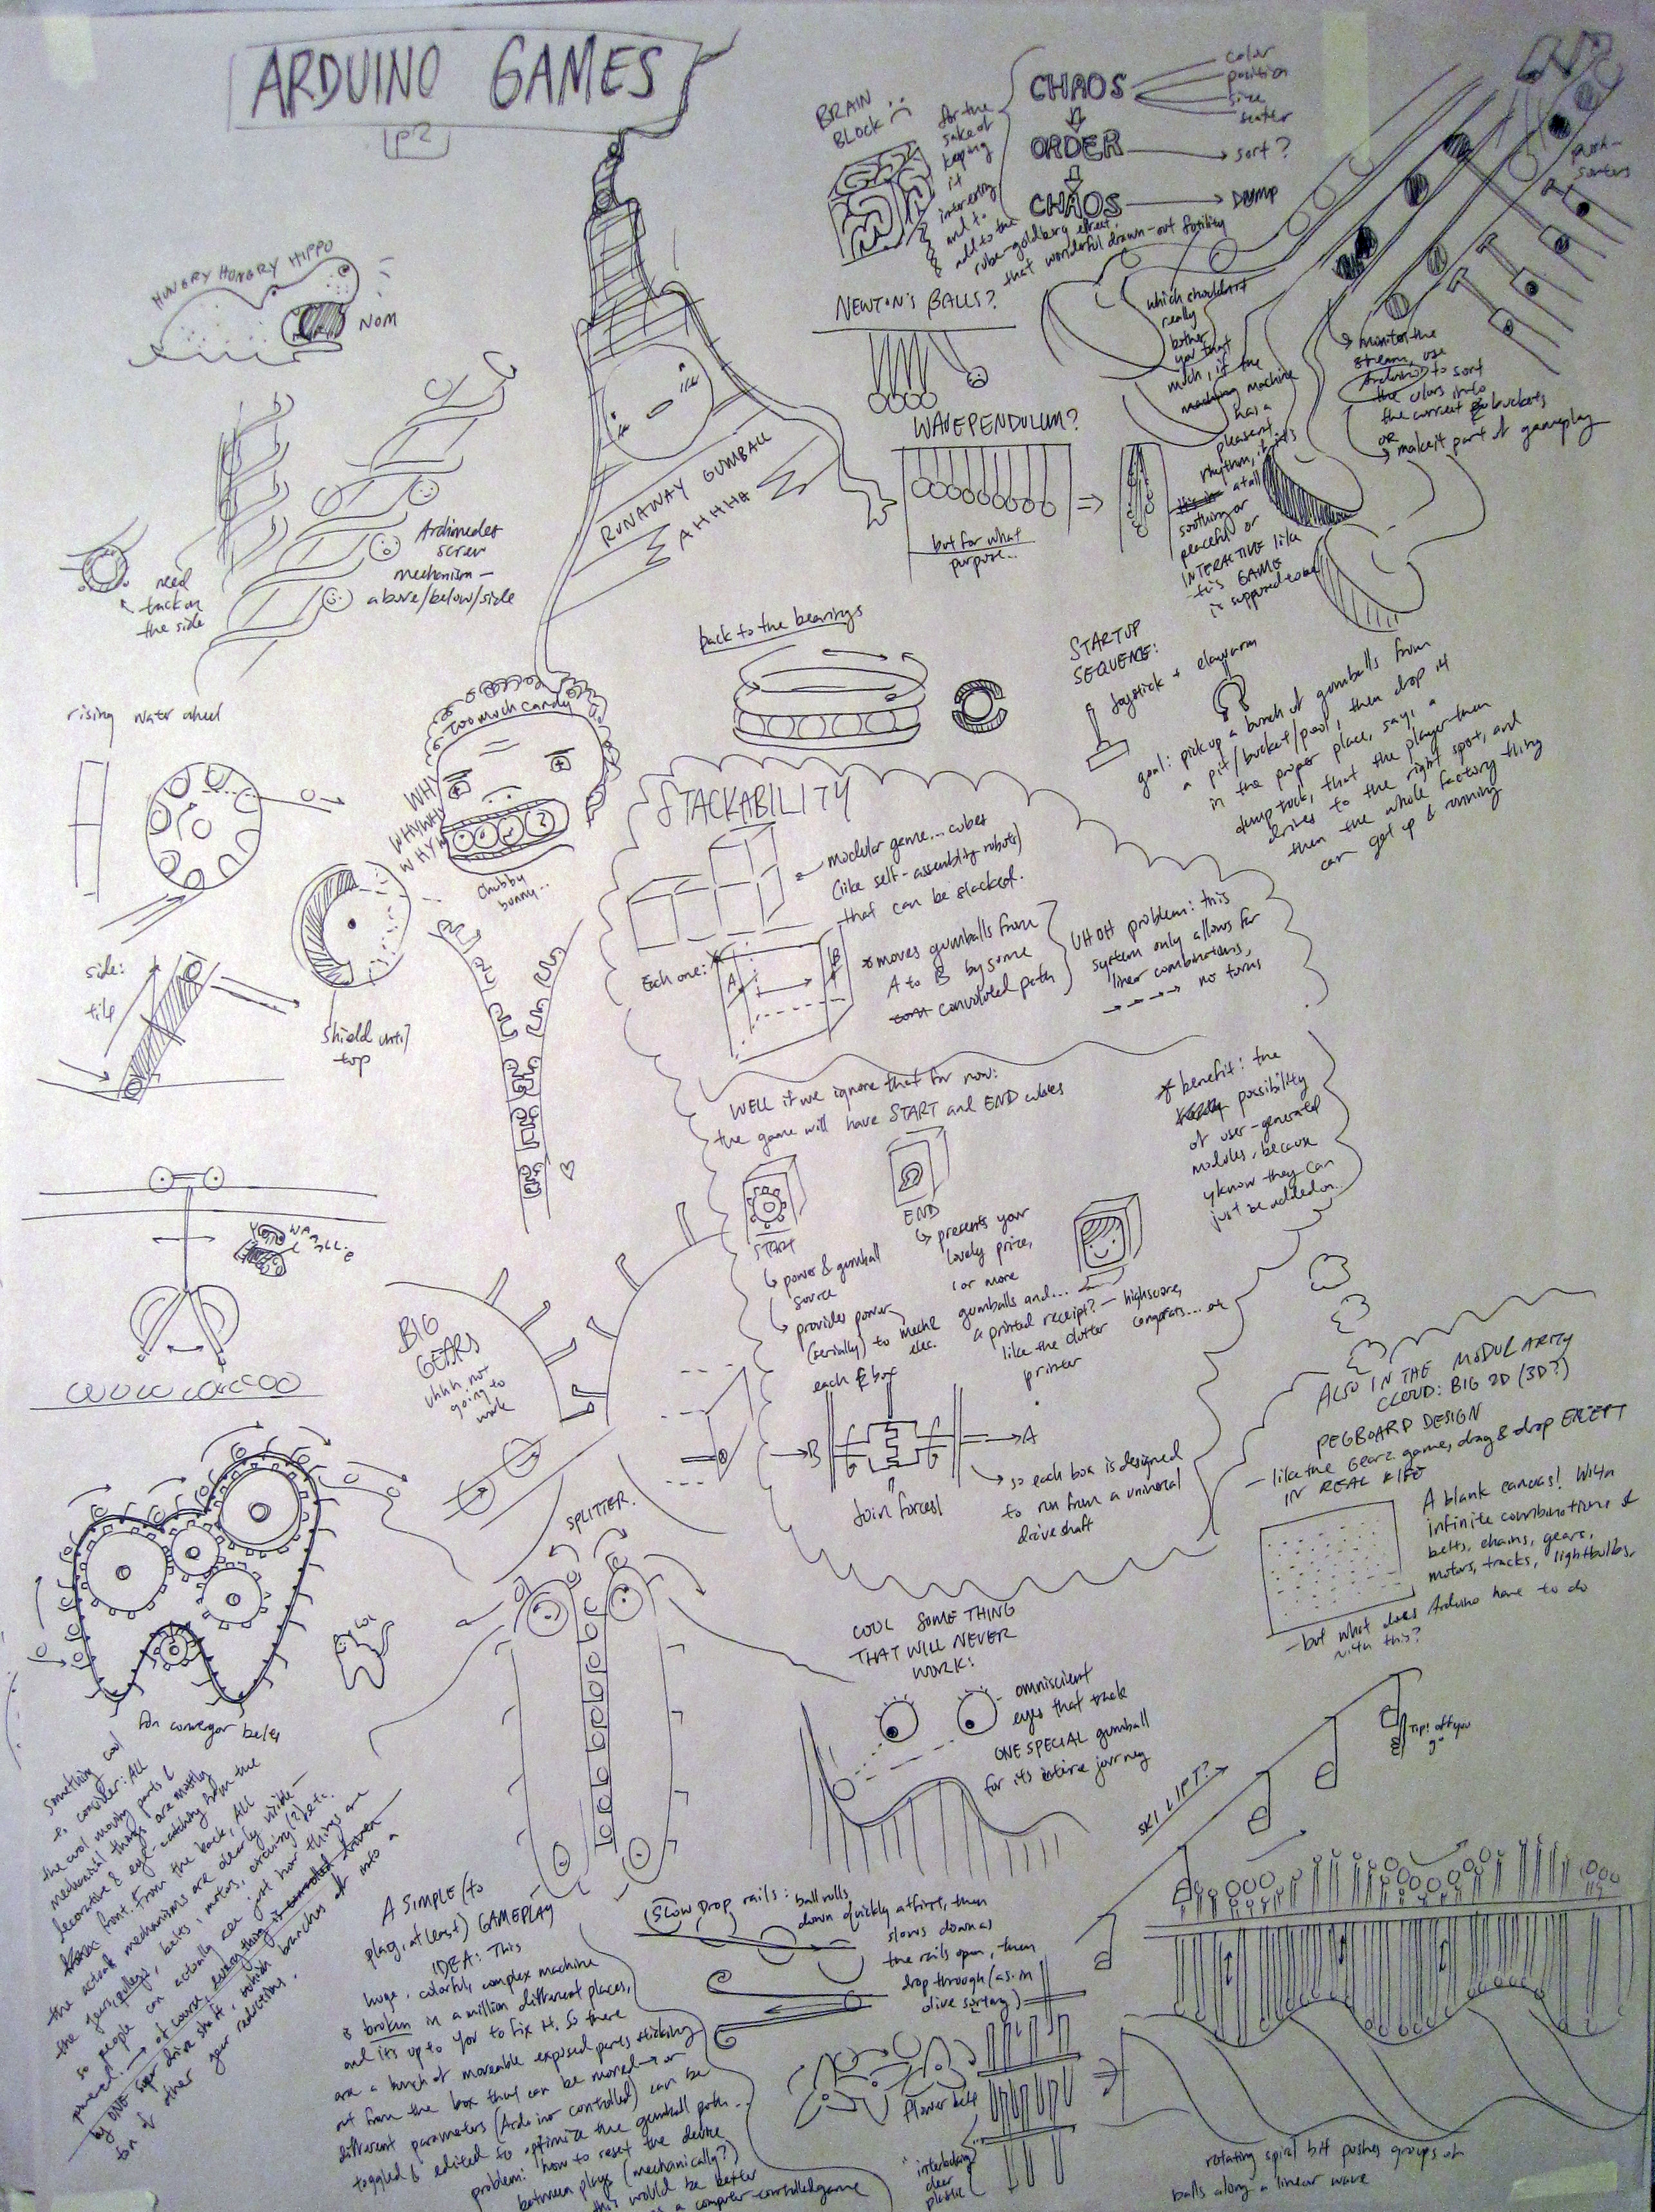 ARDUINO GAMES
p2
BRAIN
BLOCK :(
for the
sake of
keeping
it
interesting
and to
add to the
rube-goldberg effect,
that wonderful drawn-out futility
CHAOS
color
position
size
ORDER
sort?
CHAOS
DUMP
push-
sorters
HUNGRY HUNGRY HIPPO
NOM
NEWTON'S BALLS?
which shouldn't
really
bother
you that
much, if the
machine
has a
pleasant
rhythm, it
at all
soothing or
peaceful or
INTERACTIVE like
this GAME
is supposed to be
monitor the
stream, use
Arduino to sort
the colors into
the correct buckets
OR
make it part of gameplay
WAVEPENDULUM?
but for what
purpose...
RUNAWAY GUMBALL
AHHHH
Archimedes
screw
mechanism—
above/below/side
need
track on
the side
back to the bearings
STARTUP
SEQUENCE:
Joystick + clawarm
goal: pick up a bunch of gumballs from
a pit/bucket/pool, then drop it
in the proper place, say, a
dump truck, that the player then
drives to the right spot, and
then the whole factory thing
can get up & running
rising water wheel
too much candy
WHY
WHYWHY
WHYW
chubby
bunny..
side:
tile
shield until
top
STACKABILITY
modular game... cubes
(like self-assembly robots)
that can be stacked.
Each one:
A
B
*moves gumballs from
A to B by some
convoluted path
UH OH problem: this
system only allows for
linear combinations,
no turns
WELL if we ignore that for now:
the game will have START and END cubes
* benefit: the
possibility
of user-generated
modules, because
yknow they can
just be added on.
START
END
power & gumball
source
provides power
(serially) to mech &
elec.
each box
presents your
lovely prize,
(or more
gumballs and...
a printed receipt? — highscore,
like the clutter congrats... etc
printer
B
A
Join forces!
so each box is designed
to run from a universal
drive shaft
BIG
GEARS
uhhh not
going to
work
SPLITTER.
ALSO IN THE MODULARITY
CLOUD: BIG 2D (3D?)
PEGBOARD DESIGN
— like the Gearz game, drag & drop EXCEPT
IN REAL LIFE
A blank canvas! With
infinite combinations of
belts, chains, gears,
motors, tracks, lightbulbs.
—but what does Arduino have to do
with this?
fan conveyor belts
COOL SOMETHING
THAT WILL NEVER
WORK:
omniscient
eyes that track
ONE SPECIAL gumball
for its entire journey
something cool
to consider: ALL
the cool moving parts &
mechanical things are mostly
decorative & eye-catching from the
front. From the back, ALL
the actual mechanisms are clearly visible—
the gears, pulleys, belts, motors, circuitry(?) etc.
so people can actually see just how things are
powered. → of course, everything is driven
by ONE super drive shaft, which branches out into a
ton of other gear reductions.
A SIMPLE (to
play, at least) GAMEPLAY
IDEA: This
huge, colorful, complex machine
is broken in a million different places,
and it's up to you to fix it. So there
are a bunch of moveable exposed parts sticking
out from the box that can be moved → or
different parameters (Arduino controlled) can be
toggled & edited to optimize the gumball path...
problem: how to reset the device
between plays (mechanically?)
this would be better
as a computer-controlled game
SKI LIFT?
Tip! off you
go
Slow drop rails:
ball rolls
down quickly at first, then
slows down as
the rails open, then
drop through (as in
olive sorting)
flower belt
interlocking
clear
plastic
rotating spiral bit pushes groups of
balls along a linear wave